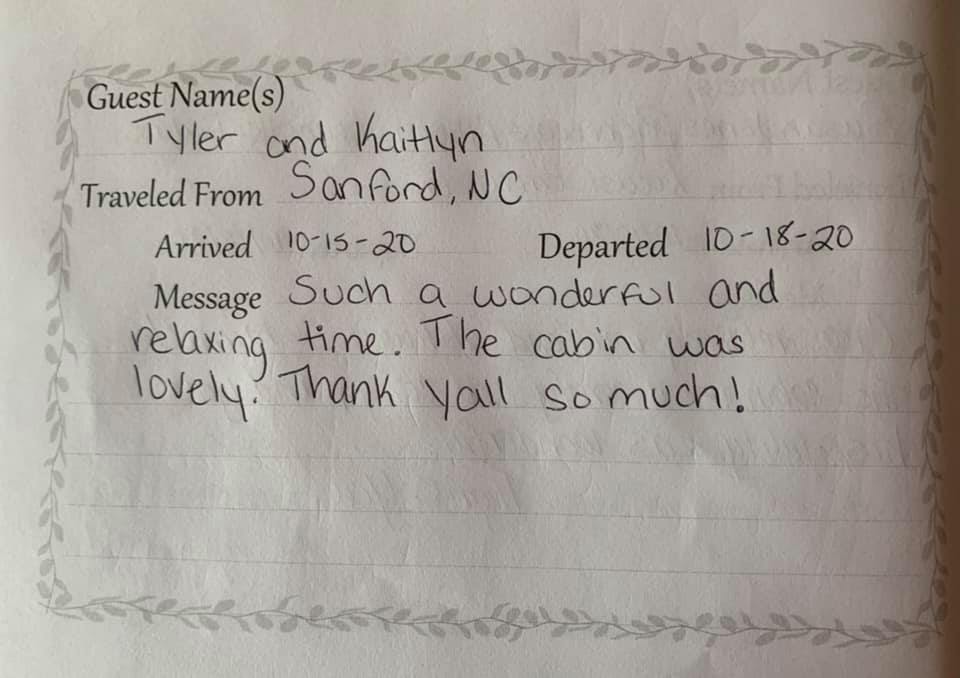 Guest Name(s)
Tyler and Kaitlyn
Traveled From Sanford, NC
Arrived 10-15-20 Departed 10-18-20
Message Such a wonderful and
relaxing time. The cabin was
lovely. Thank yall so much!